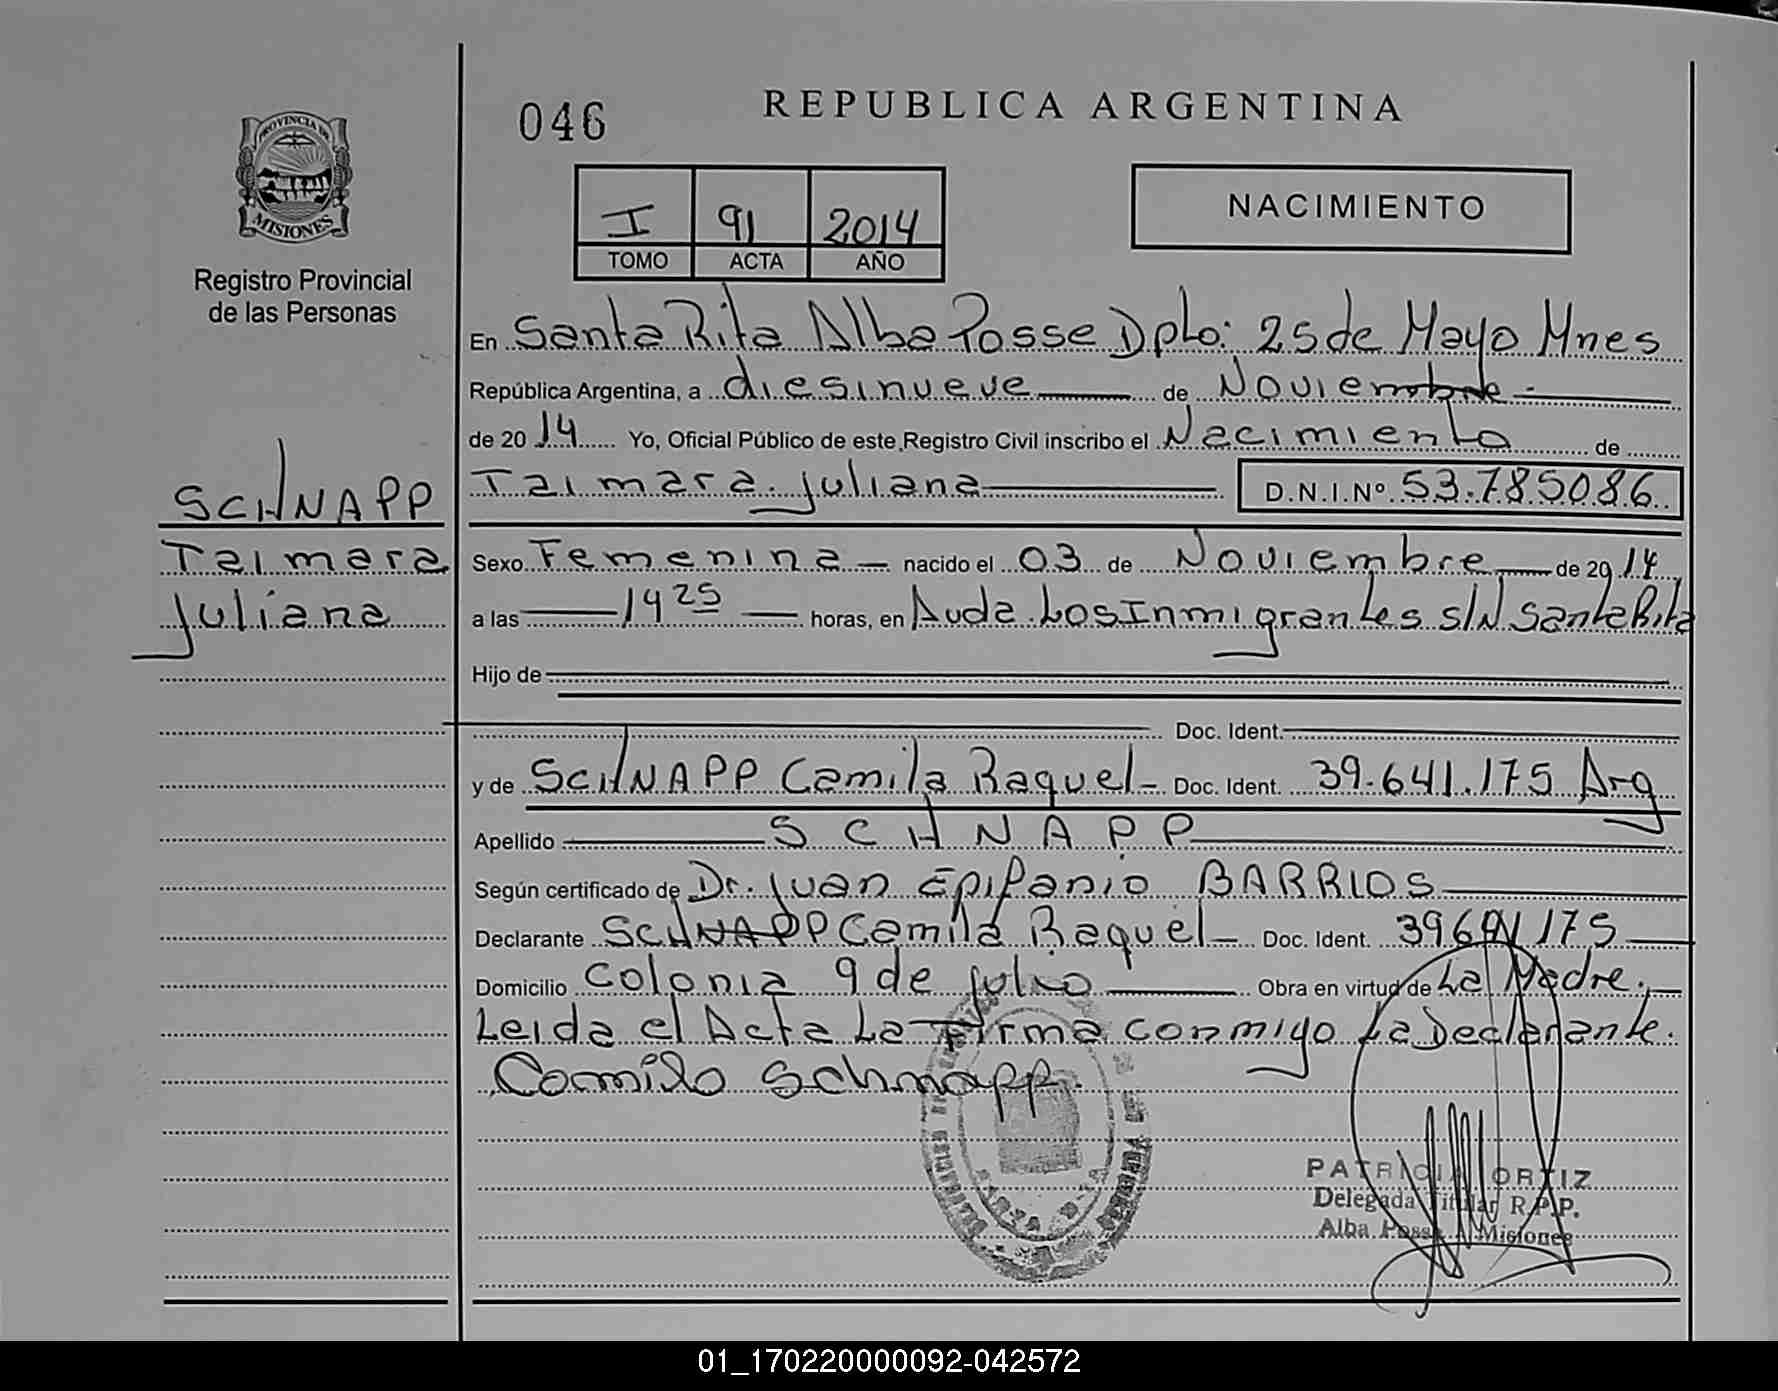 REPUBLICA ARGENTINA
046
PROVINCIA DE
MISIONES
Registro Provincial
de las Personas
I 91 2014
TOMO ACTA AÑO
NACIMIENTO
En Santa Rita Alba Posse Dpto: 25 de Mayo Mnes
República Argentina, a diesinueve de Noviembre
de 2014 Yo, Oficial Público de este Registro Civil inscribo el Nacimiento de
Taimara Juliana D.N.I.Nº 53.785086
SCHNAPP
Taimara
Juliana
Sexo Femenina nacido el 03 de Noviembre de 2014
a las 14 25 horas, en Avda. Los Inmigrantes S/N Santa Rita
Hijo de
Doc. Ident.
y de SCHNAPP Camila Raquel Doc. Ident. 39.641.175 Arg
Apellido SCHNAPP
Según certificado de Dr. Juan Epifanio BARRIOS
Declarante SCHNAPP Camila Raquel Doc. Ident. 39641175
Domicilio Colonia 9 de Julio Obra en virtud de La Madre.
Leida el Acta La Firma conmigo La Declarante.
Camila Schnapp.
PATRICIA ORTIZ
Delegada Titular R.P.P.
Alba Posse Misiones
01_170220000092-042572